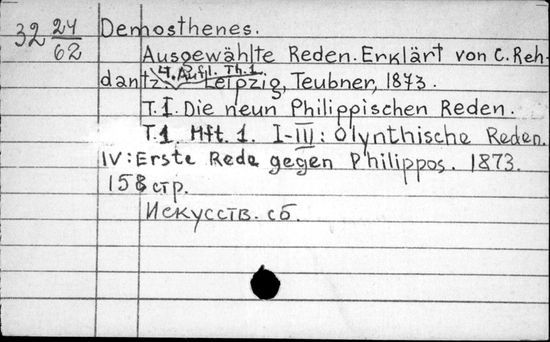 32 24/62
Demosthenes.
Ausgewählte Reden. Erklärt von C. Reh-
dantz. 4. Aufl. Th. 1. Leipzig, Teubner, 1873.
T. I. Die neun Philippischen Reden.
T. 1. Hft. 1. I-III: Olynthische Reden.
IV: Erste Rede gegen Philippos. 1873.
158 стр.
Искусств. сб.